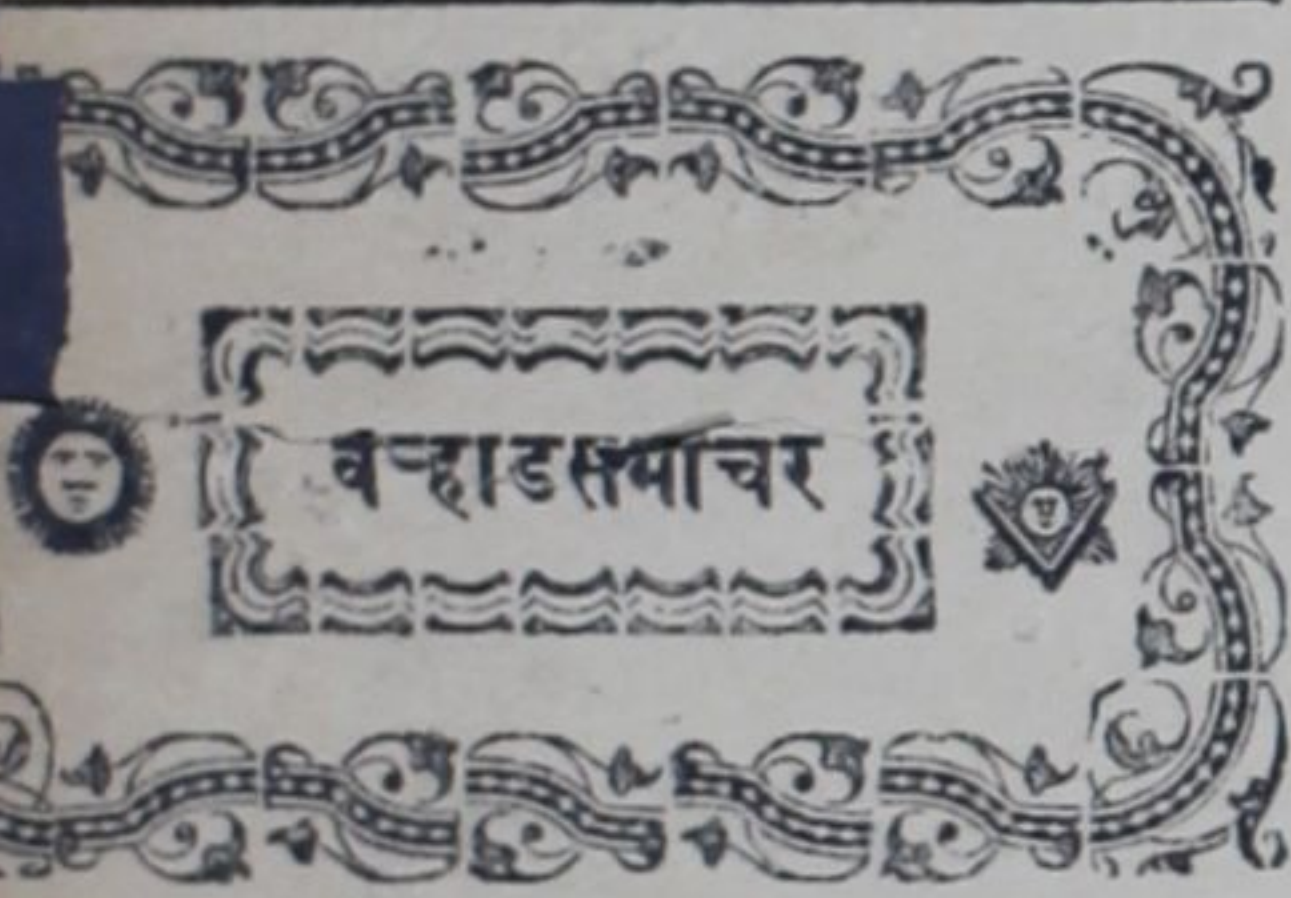 वऱ्हाडसमाचर